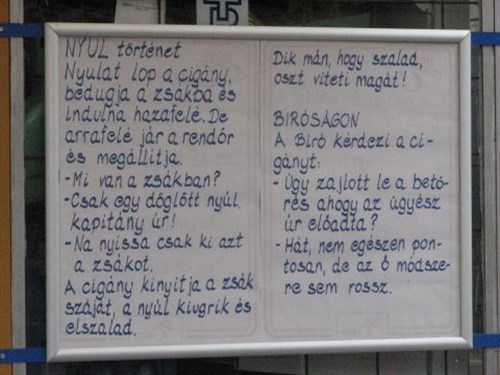 NYÚL történet
Nyulat lop a cigány,
bedugja a zsákba és
indulna hazafelé. De
arrafelé jár a rendőr
és megállítja.
- Mi van a zsákban?
- Csak egy döglött nyúl,
kapitány úr!
- Na nyissa csak ki azt
a zsákot.
A cigány kinyitja a zsák
száját, a nyúl kiugrik és
elszalad.
Dik mán, hogy szalad,
oszt viteti magát!
BIRÓSÁGON
A Biró kérdezi a ci-
gányt:
- Úgy zajlott le a betö-
rés ahogy az ügyész
úr előadta?
- Hát, nem egészen pon-
tosan, de az Ő módsze-
re sem rossz.